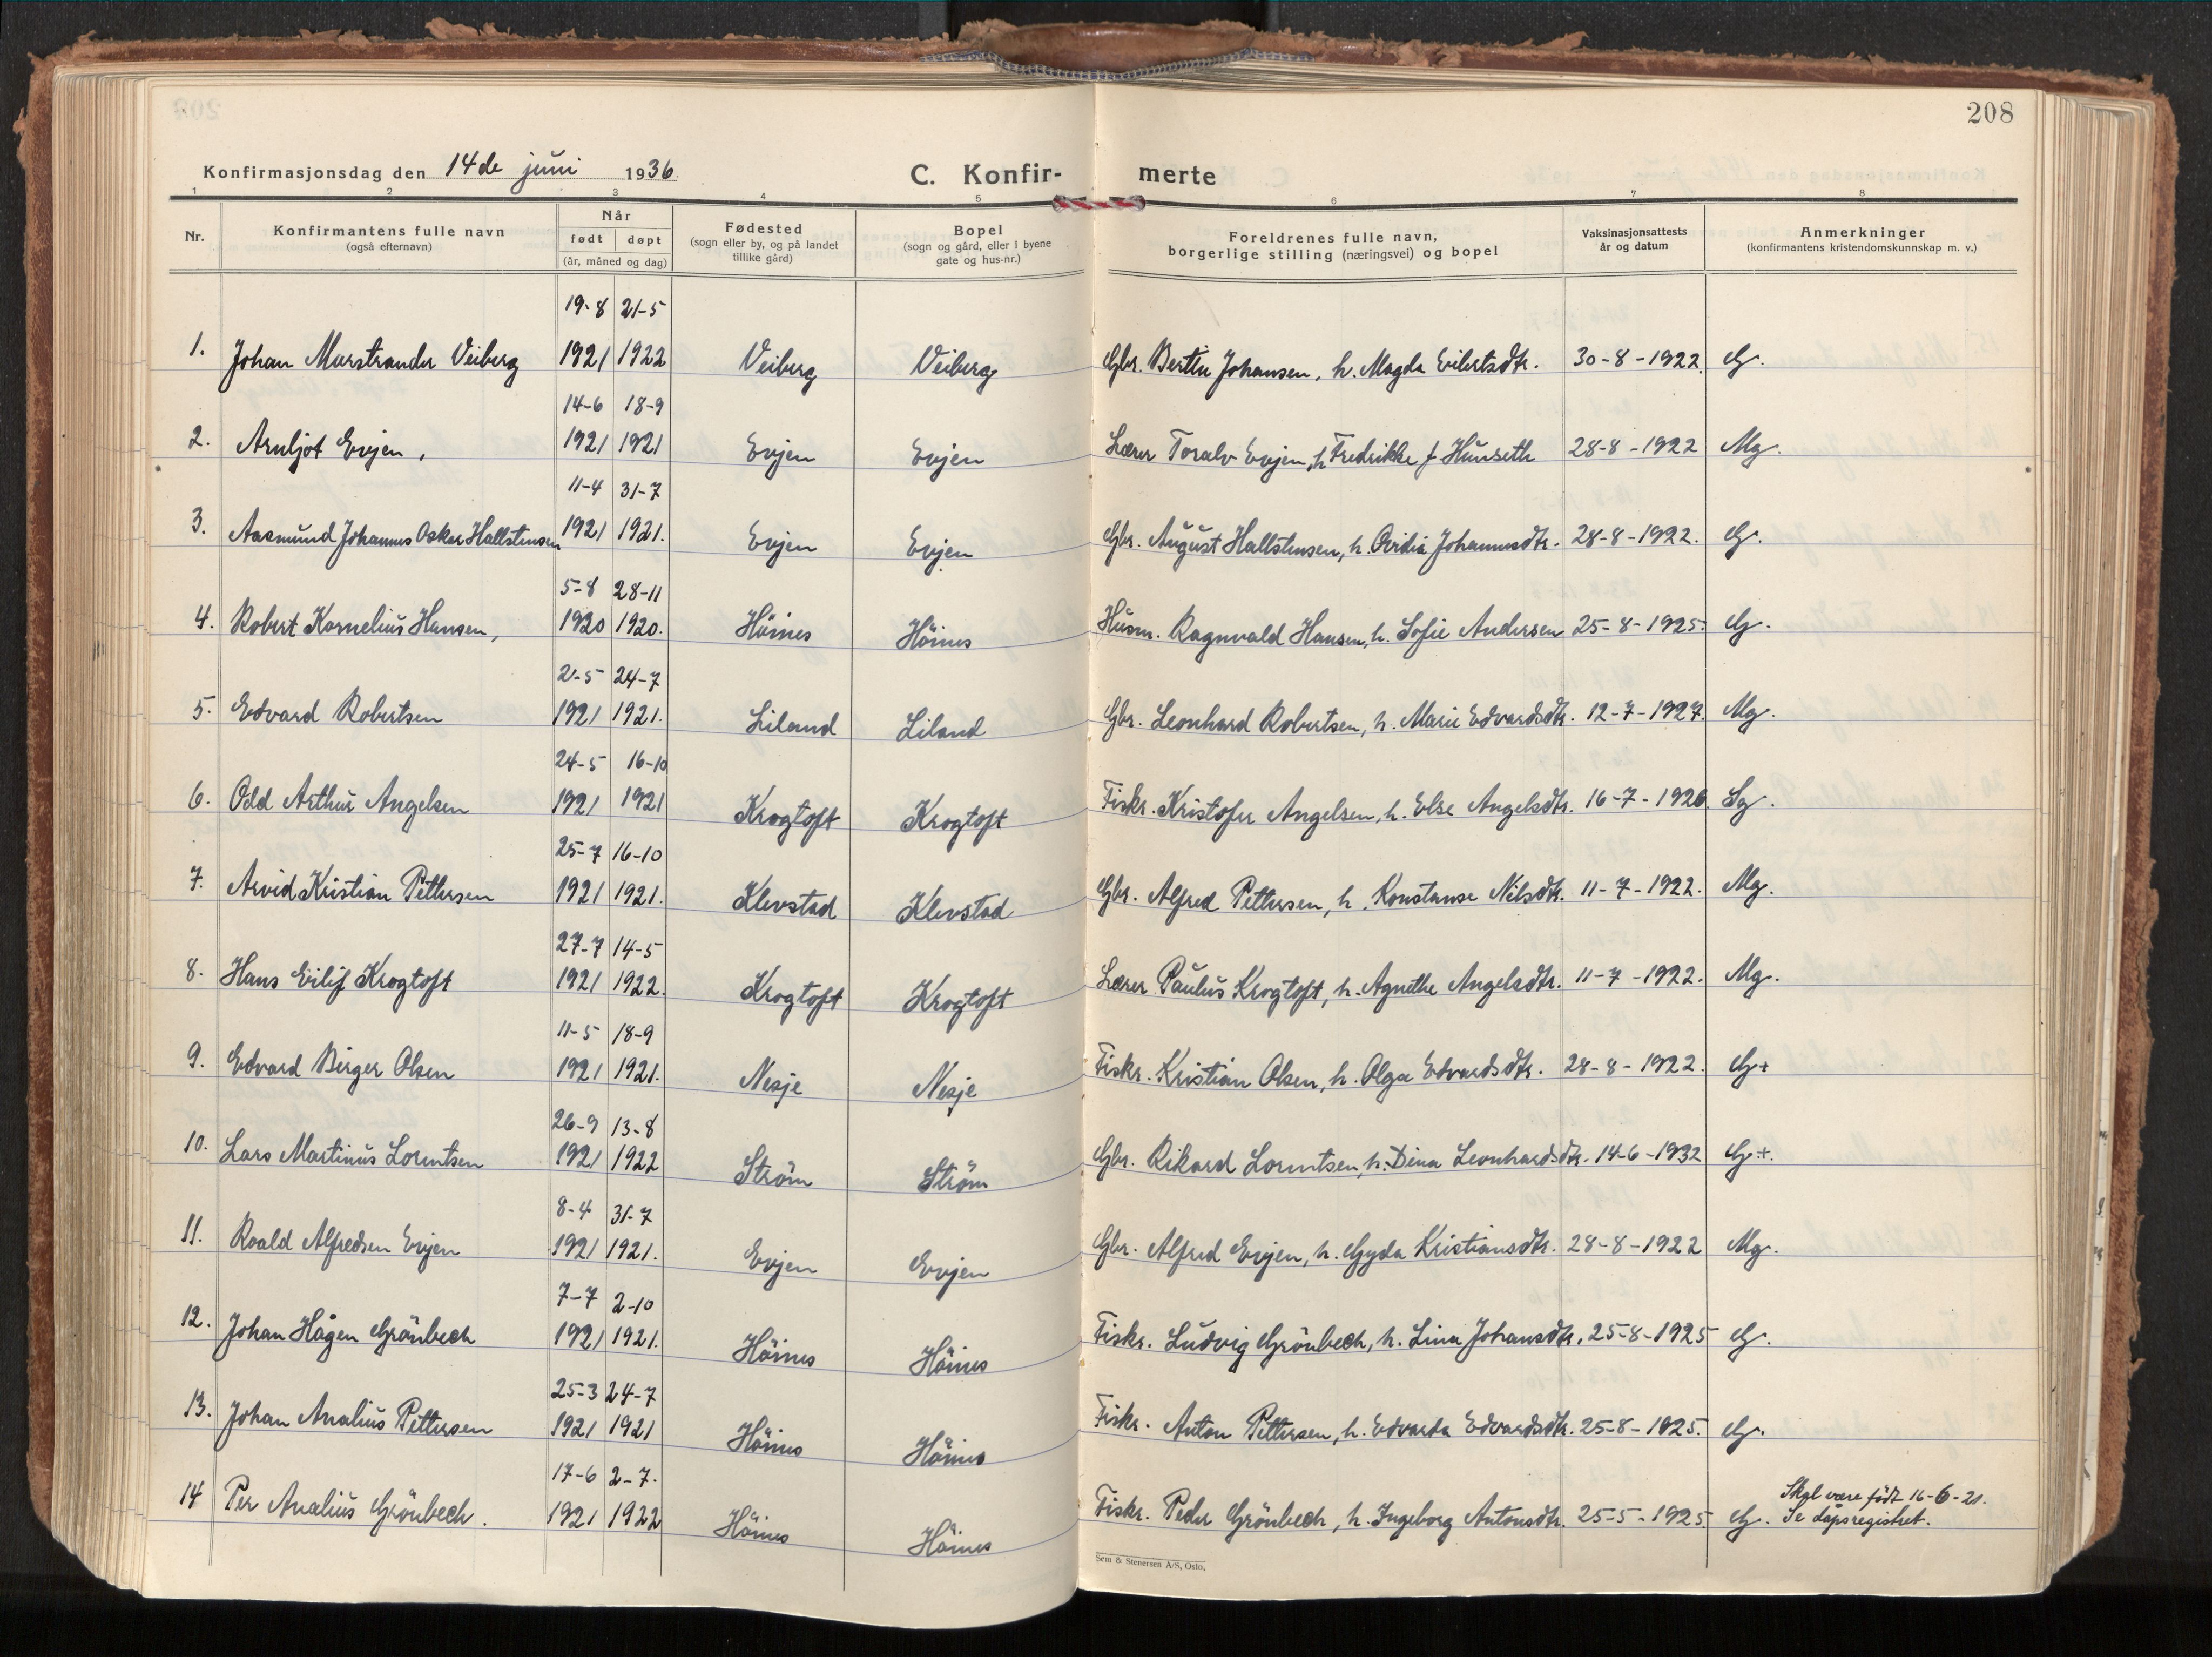 208
Konfirmasjonsdag den 14de juni 1936.
C. Konfir- merte
1 2 3 4 5 6 7 8
Nr.
Konfirmantens fulle navn
(også efternavn)
Når
født døpt
(år, måned og dag)
Fødested
(sogn eller by, og på landet
tillike gård)
Bopel
(sogn og gård, eller i byene
gate og hus-nr.)
Foreldrenes fulle navn,
borgerlige stilling (næringsvei) og bopel
Vaksinasjonsattests
år og datum
Anmerkninger
(konfirmantens kristendomskunnskap m. v.)
19-8 21-5
1. Johan Marstrander Veiberg 1921 1922 Veiberg Veiberg Gbr. Bertin Johansen, h. Magda Eilertsdtr. 30-8-1922. G.
14-6 18-9
2. Arnljot Evjen, 1921 1921 Evjen Evjen Lærer Toralv Evjen, h. Fredrikke f Hunseth 28-8-1922 Mg.
11-4 31-7
3. Aasmund Johannes Oskar Hallstensen 1921 1921. Evjen Evjen Gbr. August Hallstensen, h. Ovidia Johannesdtr. 28-8-1922. G.
5-8 28-11
4. Robert Kornelius Hansen, 1920 1920. Höines Höines Husm. Ragnvald Hansen, h. Sofie Andersen 25-8-1925. G.
2-5 24-7
5. Edvard Robertsen 1921 1921. Liland Liland Gbr. Leonhard Robertsen, h. Marie Edvardsdtr. 12-7-1927. Mg.
24-5 16-10
6. Odd Arthur Angelsen 1921 1921 Krogtoft Krogtoft Fiskr. Kristofer Angelsen, h. Else Angelsdtr. 16-7-1926. Sg.
25-7 16-10
7. Arvid Kristian Pettersen 1921 1921. Klevstad Klevstad Gbr. Alfred Pettersen, h. Konstanse Nilsdtr. 11-7-1922. Mg.
27-7 14-5
8. Hans Eilif Krogtoft 1921 1922. Krogtoft Krogtoft Lærer Paulus Krogtoft, h. Agnethe Angelsdtr. 11-7-1922. Mg.
11-5 18-9
9. Edvard Birger Olsen 1921 1921. Nesje Nesje Fiskr. Kristian Olsen, h. Olga Edvardsdtr. 28-8-1922. G+
26-9 13-8
10. Lars Martinus Lorntsen 1921 1922 Ström Ström Gbr. Rikard Lorntsen, h. Dina Leonhardsdtr. 14-6-1932 G+.
8-4 31-7
11. Roald Alfredsen Evjen 1921 1921. Evjen Evjen Gbr. Alfred Evjen, h. Gyda Kristiansdtr. 28-8-1922 Mg.
7-7 2-10
12. Johan Hågen Grönbech 1921 1921. Höines Höines Fiskr. Ludvig Grönbech, h. Lina Johansdtr. 25-8-1925 G.
25-3 24-7
13. Johan Analius Pettersen 1921 1921 Höines Höines Fiskr. Anton Pettersen, h. Edvarda Edvardsdtr. 25-8-1925. G.
17-6 2-7. Skal være født 16-6-21.
14 Per Analius Grönbech. 1921 1922 Höines Höines Fiskr. Peder Grönbech, h. Ingeborg Antonsdtr. 25-5-1925. G. Se dåpsregistret.
Sem & Stenersen A/S, Oslo.